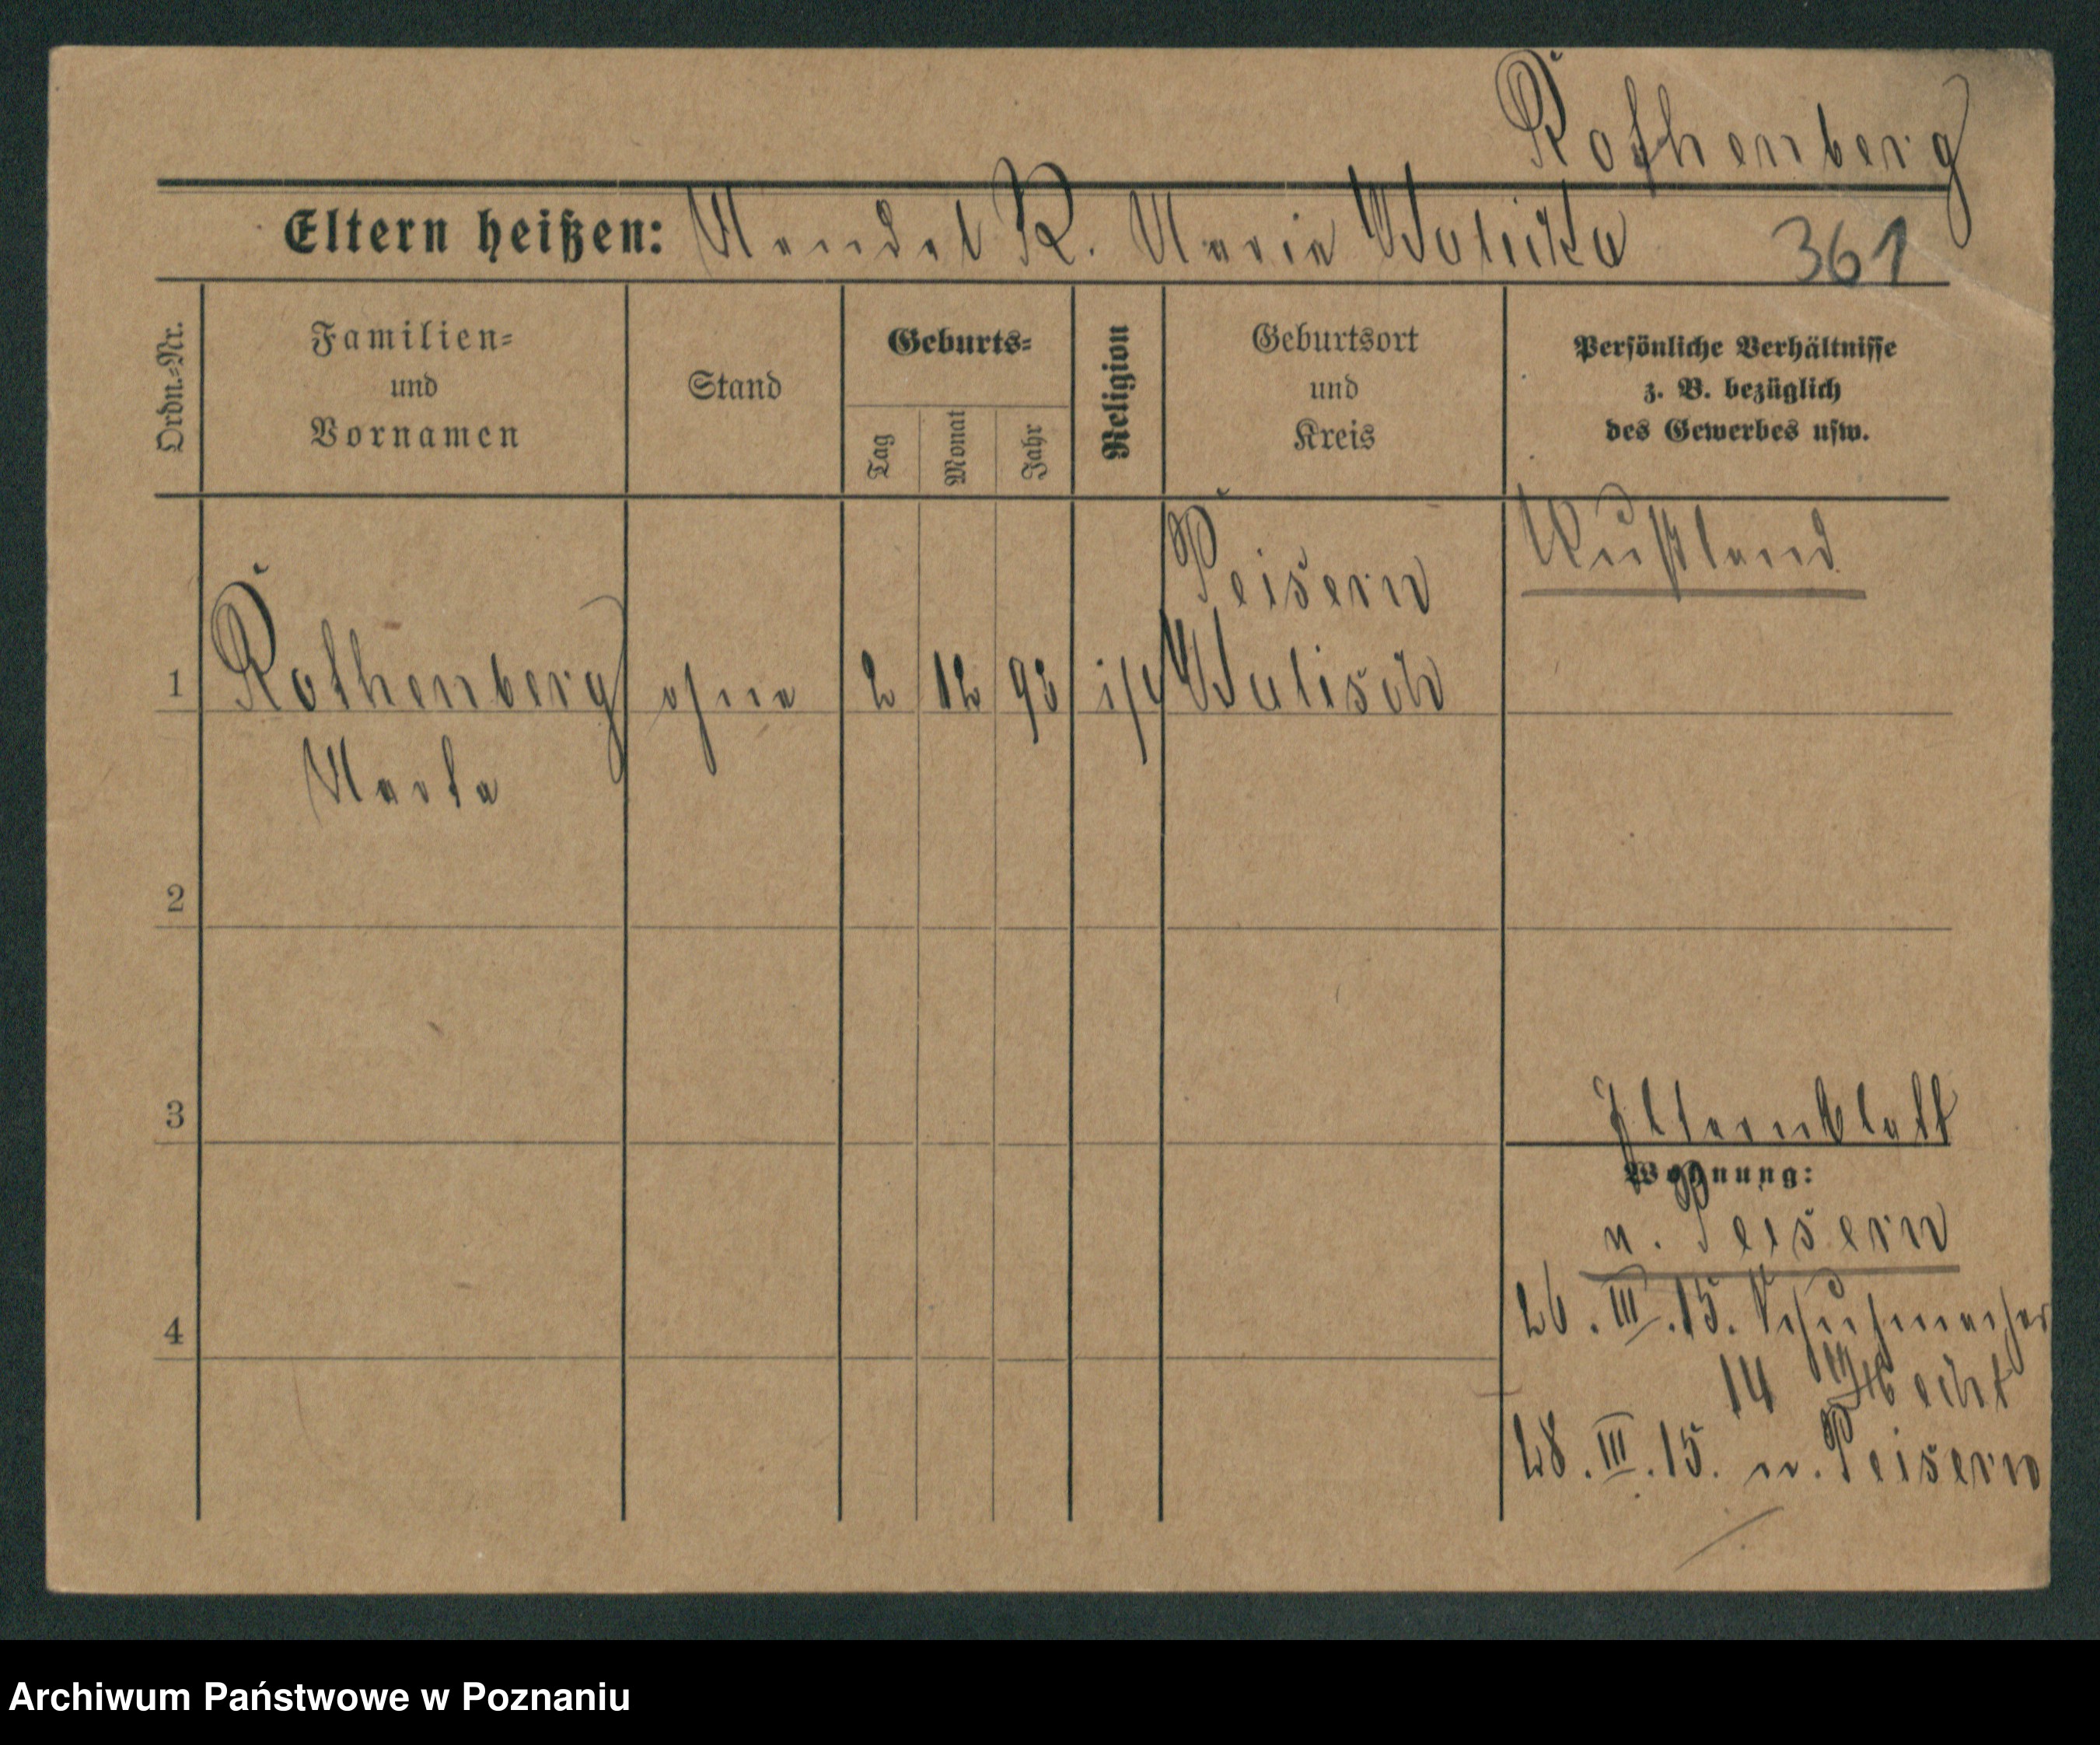 Rothenberg
Eltern heißen: Mendel R. Marie Wolicka 361
Ordn.-Nr.
Familien-
und
Vornamen
Stand
Geburts-
Tag
Monat
Jahr
Religion
Geburtsort
und
Kreis
Persönliche Verhältnisse
z. B. bezüglich
des Gewerbes usw.
Peisern
Rußland
1 Rothenberg ohne 2 12 98 isr
Marta
2
3
Elternblatt
Wohnung:
n. Peisern
4
26. III. 15. Schuhmacher
14
28. III. 15. n. Peisern
Archiwum Państwowe w Poznaniu